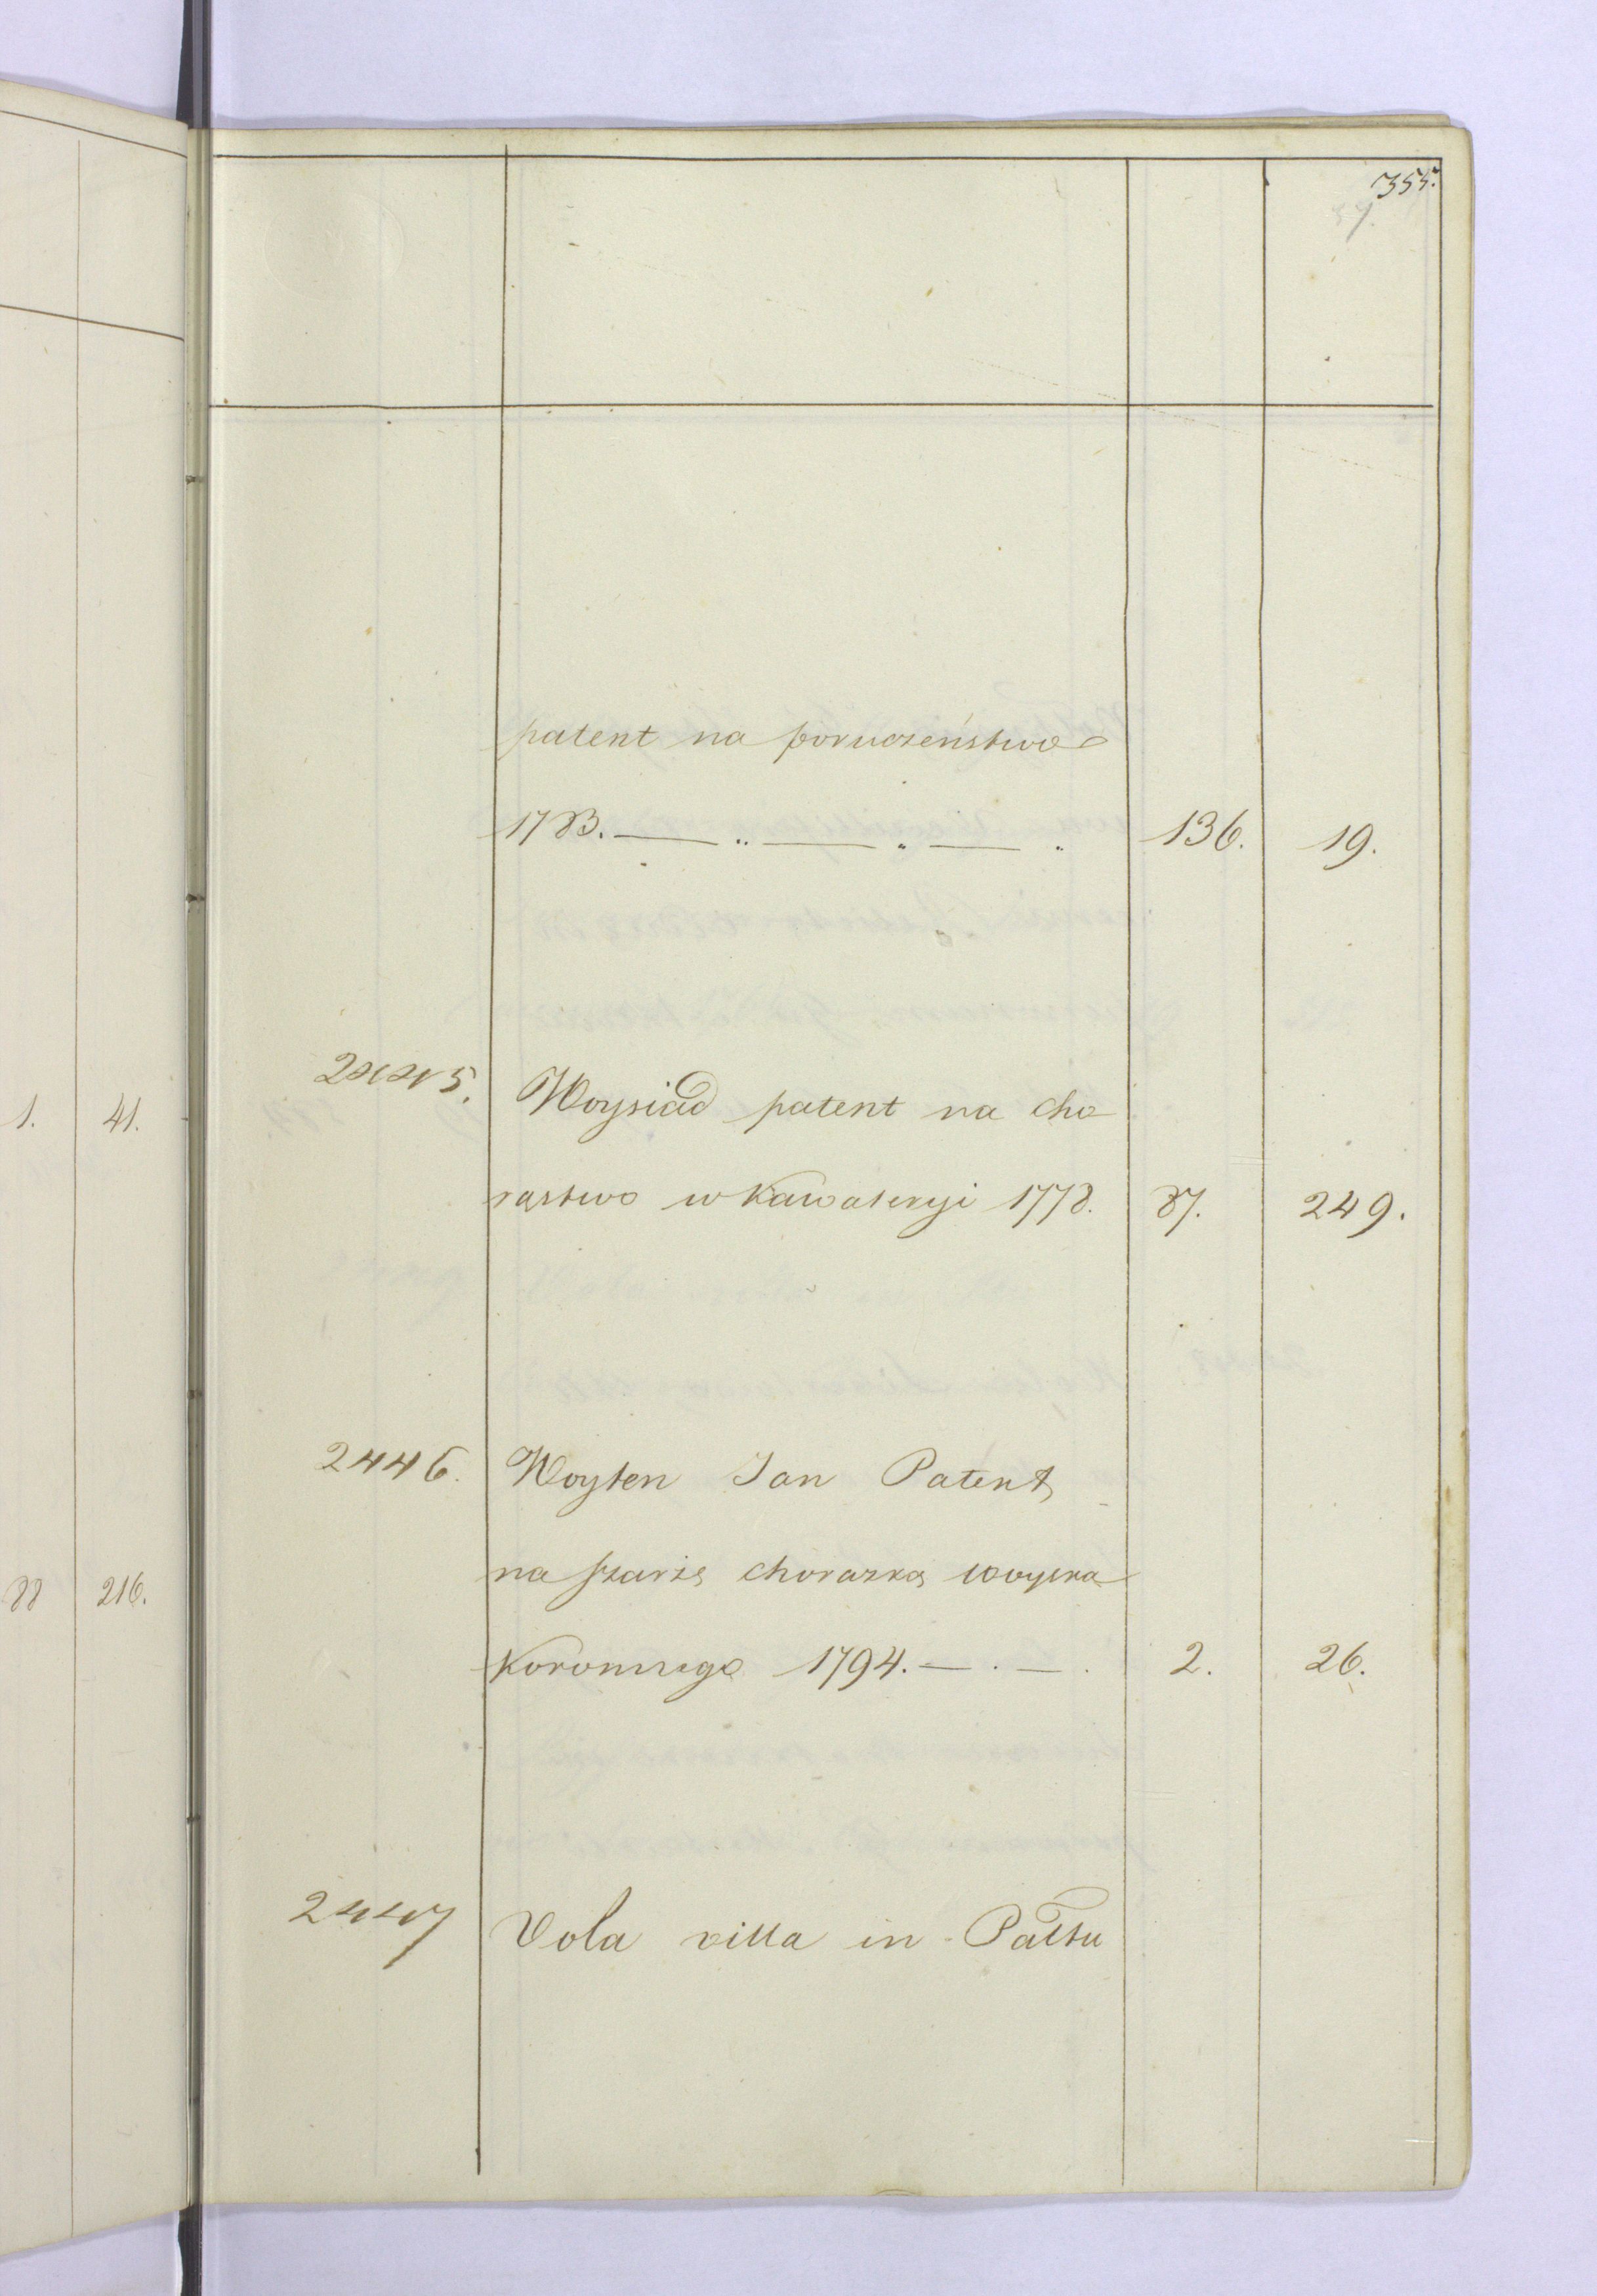 355.
37.
patent na poruczeństwo
1783. — „ — „ — „ 136. 19.
2445. Woysiad patent na cho
rąstwo w Kawaleryi 1778. 87. 249.
1. 41.
2446. Woyten Jan Patent
na szarżę chorązką woyska
88 216.
Koronnego 1794. — . — . 2. 26.
2447 Vola villa in Palttu